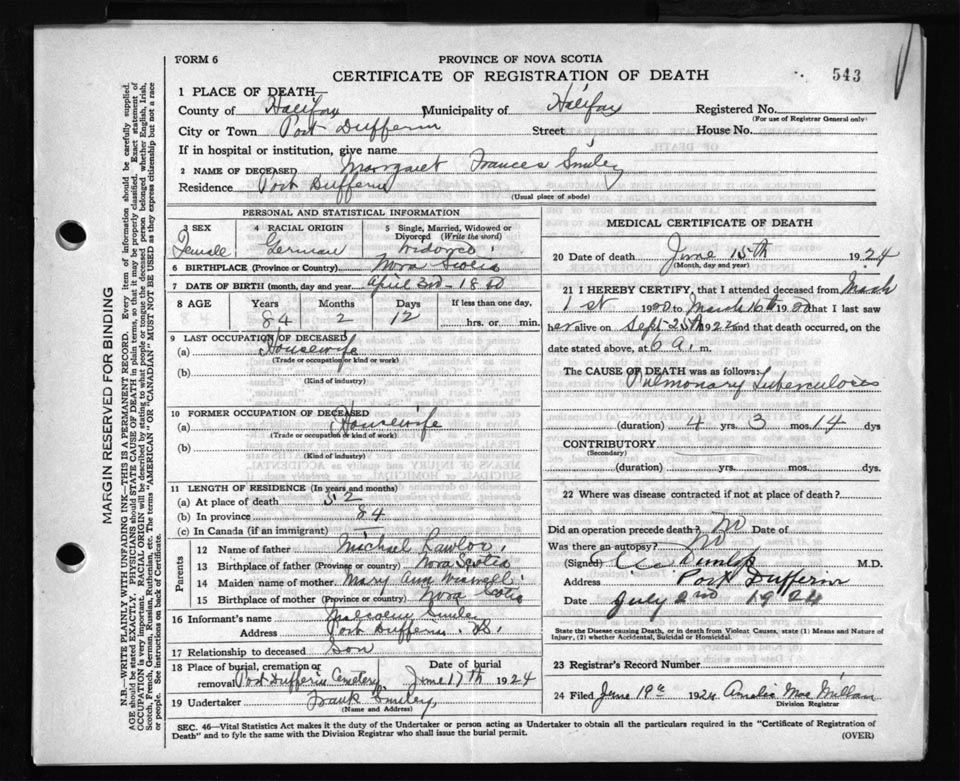 FORM 6
PROVINCE OF NOVA SCOTIA
CERTIFICATE OF REGISTRATION OF DEATH
543
1 PLACE OF DEATH—
County of Halifax Municipality of Halifax Registered No.
(For use of Registrar General only)
City or Town Port Dufferin Street House No.
If in hospital or institution, give name
2 NAME OF DECEASED Margaret Frances Smiley
Residence Port Dufferin
(Usual place of abode)
PERSONAL AND STATISTICAL INFORMATION
3 SEX 4 RACIAL ORIGIN 5 Single, Married, Widowed or
Divorced (Write the word)
Female German Widowed
6 BIRTHPLACE (Province or Country) Nova Scotia
7 DATE OF BIRTH (month, day and year) April 3rd - 1840
8 AGE Years Months Days If less than one day,
84 84 2 12 hrs. or min.
9 LAST OCCUPATION OF DECEASED
(a) Housewife
(Trade or occupation or kind or work)
(b)
(Kind of industry)
10 FORMER OCCUPATION OF DECEASED
(a) Housewife
(Trade or occupation or kind of work)
(b)
(Kind of industry)
11 LENGTH OF RESIDENCE (In years and months)
(a) At place of death 52
(b) In province 84
(c) In Canada (if an immigrant) —
Parents
12 Name of father Michael Lawlor
13 Birthplace of father (Province or country) Nova Scotia
14 Maiden name of mother Mary Ann
15 Birthplace of mother (Province or country) Nova Scotia
16 Informant's name Smiley
Address Port Dufferin
17 Relationship to deceased Son
18 Place of burial, cremation or Date of burial
removal Port Dufferin Cemetery June 17th 1924
19 Undertaker Frank Smiley
(Name and Address)
MEDICAL CERTIFICATE OF DEATH
20 Date of death June 15th 1924
(Month, day and year)
21 I HEREBY CERTIFY, that I attended deceased from March
1st 1920 to March 16th 1920 that I last saw
her alive on Sept 25th 1922 and that death occurred, on the
date stated above, at 6 a.m.
The CAUSE OF DEATH was as follows:
Pulmonary Tuberculosis
(duration) 4 yrs. 3 mos. 14 dys
CONTRIBUTORY
(Secondary)
(duration) yrs. mos. dys
22 Where was disease contracted if not at place of death?
Did an operation precede death? No Date of
Was there an autopsy? No
(Signed) Dunlop M.D.
Address Port Dufferin
Date July 2nd 1924
State the Disease causing Death, or in death from Violent Causes, state (1) Means and Nature of
Injury, (2) whether Accidental, Suicidal or Homicidal.
23 Registrar's Record Number
24 Filed June 19th 1924 Amelia MacMillan
Division Registrar
SEC. 46—Vital Statistics Act makes it duty of the Undertaker or person acting as Undertaker to obtain all the particulars required in the "Certificate of Registration of
Death" and to fyle the same with the Division Registrar who shall issue the burial permit.
(OVER)
MARGIN RESERVED FOR BINDING
N.B.—WRITE PLAINLY WITH UNFADING INK—THIS IS A PERMANENT RECORD. Every item of information should be carefully supplied.
AGE should be stated EXACTLY. PHYSICIANS should STATE CAUSE OF DEATH in plain terms, so that it may be properly classified. Exact statement of
OCCUPATION is very important. RACIAL ORIGIN will be described by stating to what people or tongue the deceased person belonged whether English, Irish,
Scotch, French, German, Russian, Ruthenian, etc. The terms "AMERICAN" OR "CANADIAN" MUST NOT BE USED as they express citizenship but not a race
or people. See instructions on back of Certificate.